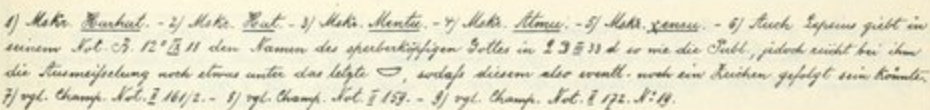 1) Mskr. Harhut. - 2) Mskr. Hut. - 3) Mskr. Mentu. - 4) Mskr. Atmu. - 5) Mskr. xensu. - 6) Auch Lepsius giebt in
seinem Not. B. 12° IX 11 den Namen des sperberköpfigen Gottes in L D III 33 d so wie die Publ., jedoch reicht bei ihm
die Ausmeißelung noch etwas unter das letzte ⌣, sodaß diesem also eventl. noch ein Zeichen gefolgt sein könnte. -
7) vgl. Champ. Not. II 161/2. - 8) vgl. Champ. Not. II 159. - 9) vgl. Champ. Not. II 172. N° 19.